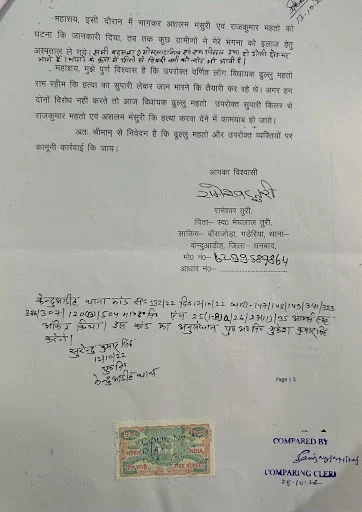 13-10-
महाशय, इसी दौरान में भागकर अशलम मंसुरी एवं राजकुमार महतो को
घटना कि जानकारी दिया, तब तक कुछ ग्रामीणों ने मेरे मगना को इलाज हेतु
अस्पताल ले गये।
महाशय, मुझे पुर्ण विश्वास है कि उपरोक्त वर्णित लोग विधायक ढुल्लु महतो
राम रहीम कि हत्या का सुपारी लेकर जान मारने कि तैयारी कर रहे थे। अगर हम
दोनों विरोध नही करते तो आज विधायक ढुल्लु महतो उपरोक्त सुपारी किलर से
राजकुमार महतो एवं अशलम मंसुरी कि हत्या करवा देने में कामयाब हो जाते।
अतः श्रीमान् से निवेदन है कि ढुल्लु महतो और उपरोक्त व्यक्तियों पर
कानूनी कार्रवाई कि जाय।
आपका विश्वासी
रामेश्वर तुरी,
पिता– स्व० मेघलाल तुरी,
साकिम– बाँसजोड़ा, गडेरिया, थाना–
केन्दुआडीह, जिला– धनबाद,
मो० नं०– 6299589864
आधार नं०– ........................
केन्दुआडीह थाना कांड सं० 132/22 दि० 12/10/22 धारा- 147/148/149/341/323
307/120(B)/504 भा०द०वि० एवं 25(1-B)a/26/27(1)/35 आर्म्स एक्ट
अंकित किया। इस कांड का अनुसंधान पु०अ०नि० मुकेश कुमार
करेगें।
सुरेन्द्र कुमार सिंह
12/10/22
पु०अ०नि०
केन्दुआडीह थाना
Page | 3
INDIA
COMPARED BY
COMPARING CLERK
28-10-22